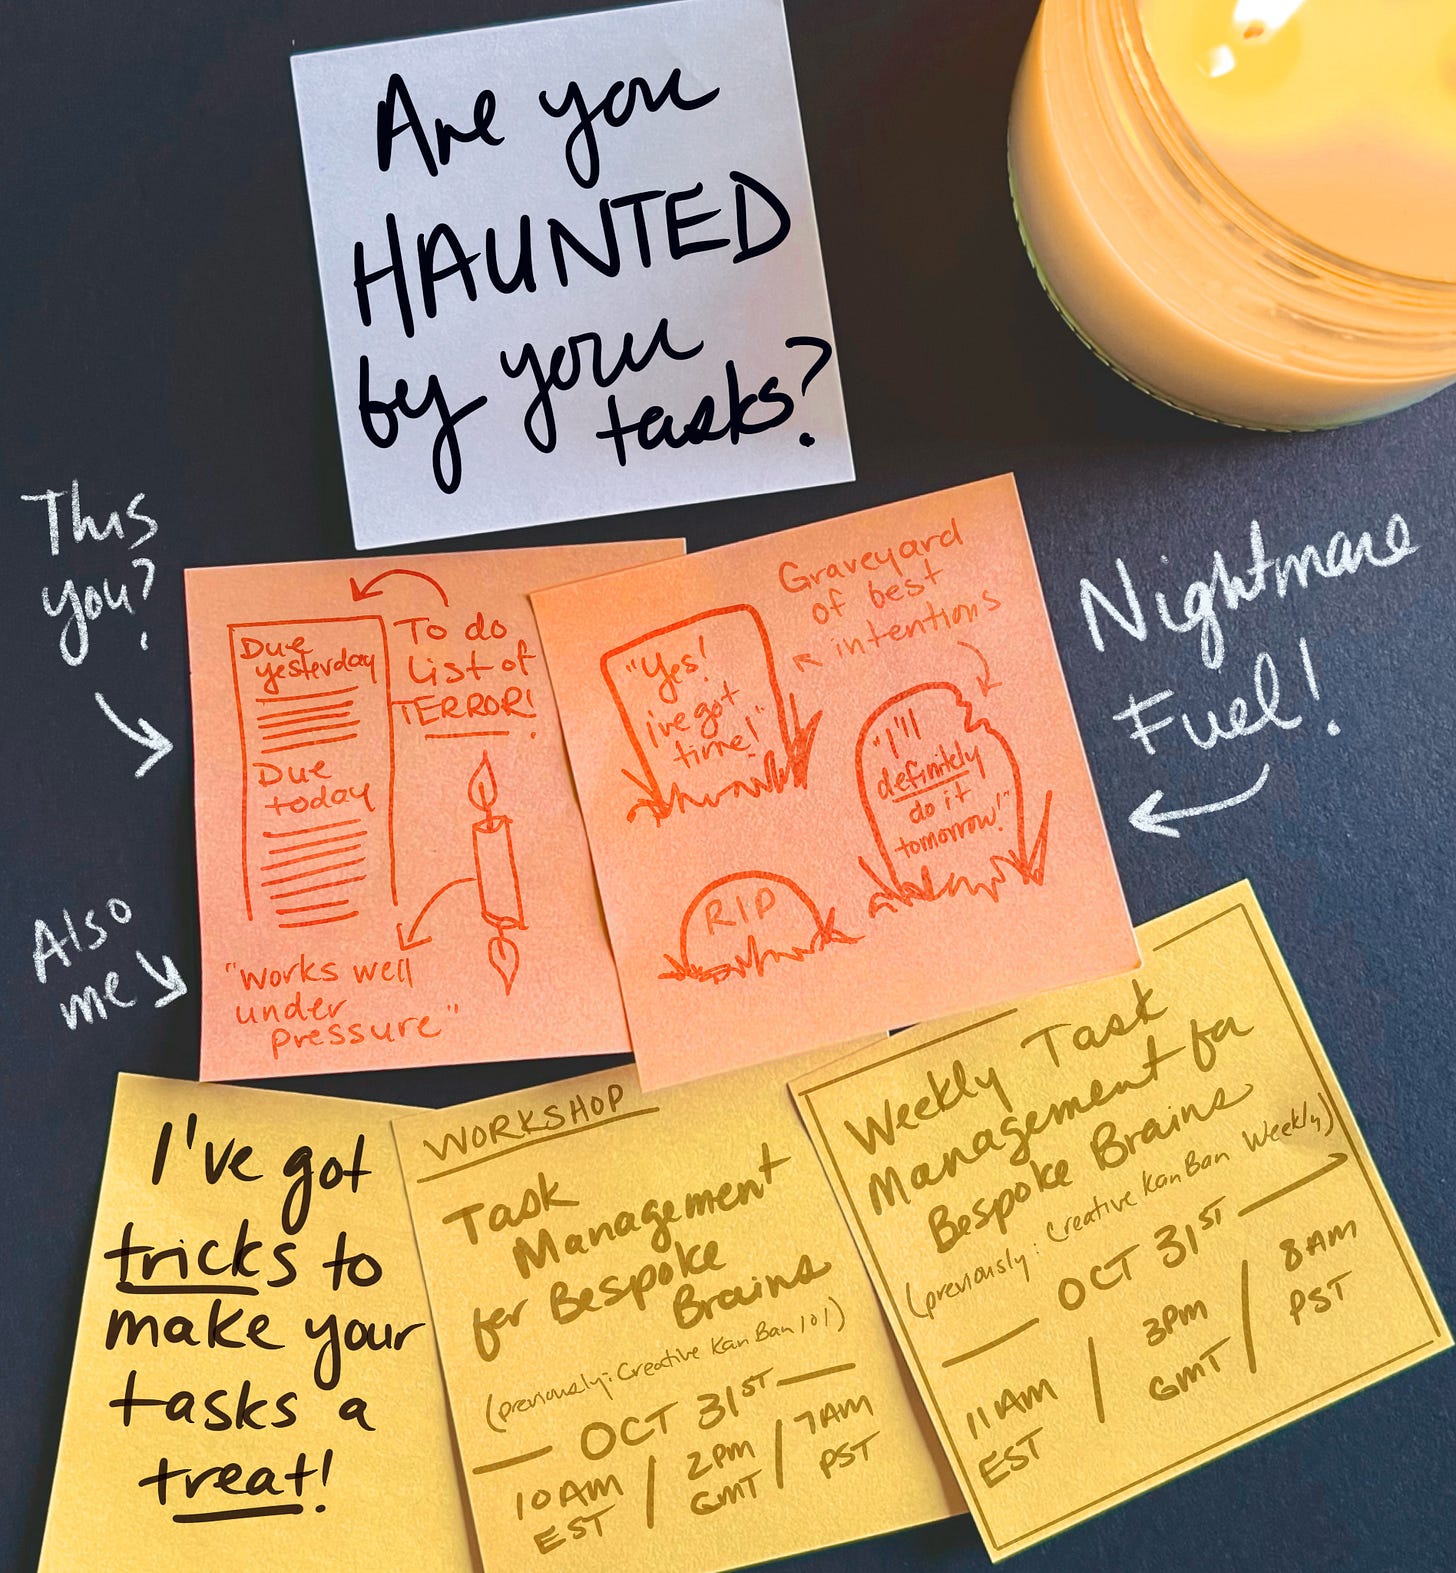 Are you
HAUNTED
by your
tasks?
This
you?
!
Due
yesterday
Due
today
To do
list of
TERROR!
"works well
under
pressure"
Also
me
Graveyard
of best
intentions
"Yes!
i've got
time!"
"I'll
definitely
do it
tomorrow!"
RIP
Nightmare
Fuel!
I've got
tricks to
make your
tasks a
treat!
WORKSHOP
Task
Management
for Bespoke
Brains
(previously: Creative KanBan 101)
OCT 31ST
10AM
EST
/
2PM
GMT
/
7AM
PST
Weekly Task
Management for
Bespoke Brains
(previously: Creative KanBan Weekly)
OCT 31ST
11AM
EST
/
3PM
GMT
/
8AM
PST